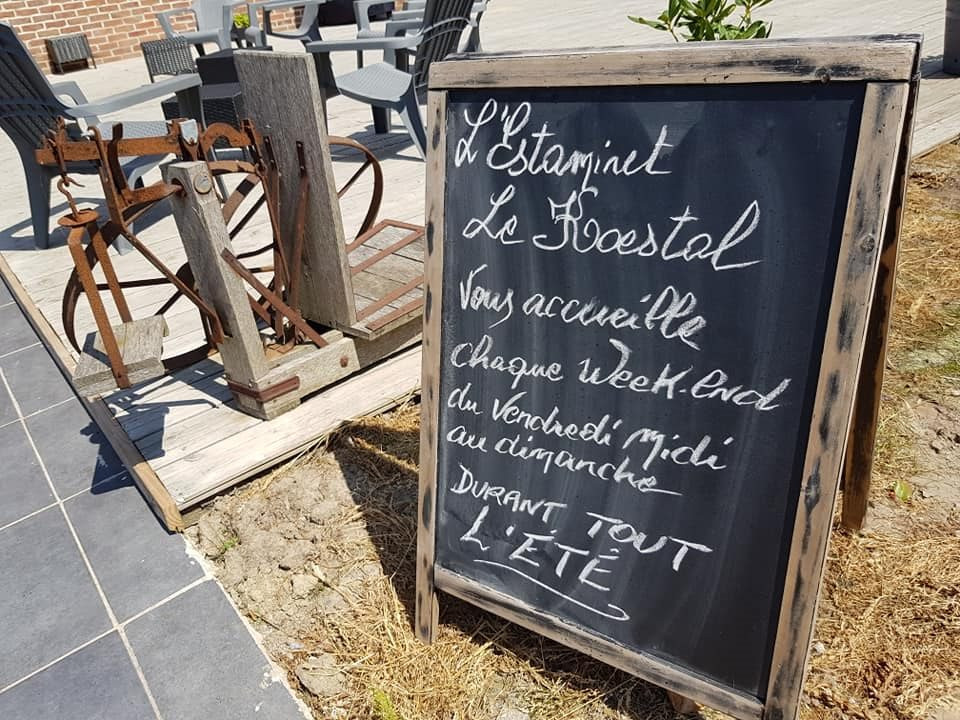 L'Estaminet
Le Koestal
Vous accueille
chaque Week-end
du Vendredi midi
au dimanche
DURANT TOUT
L'ÉTÉ